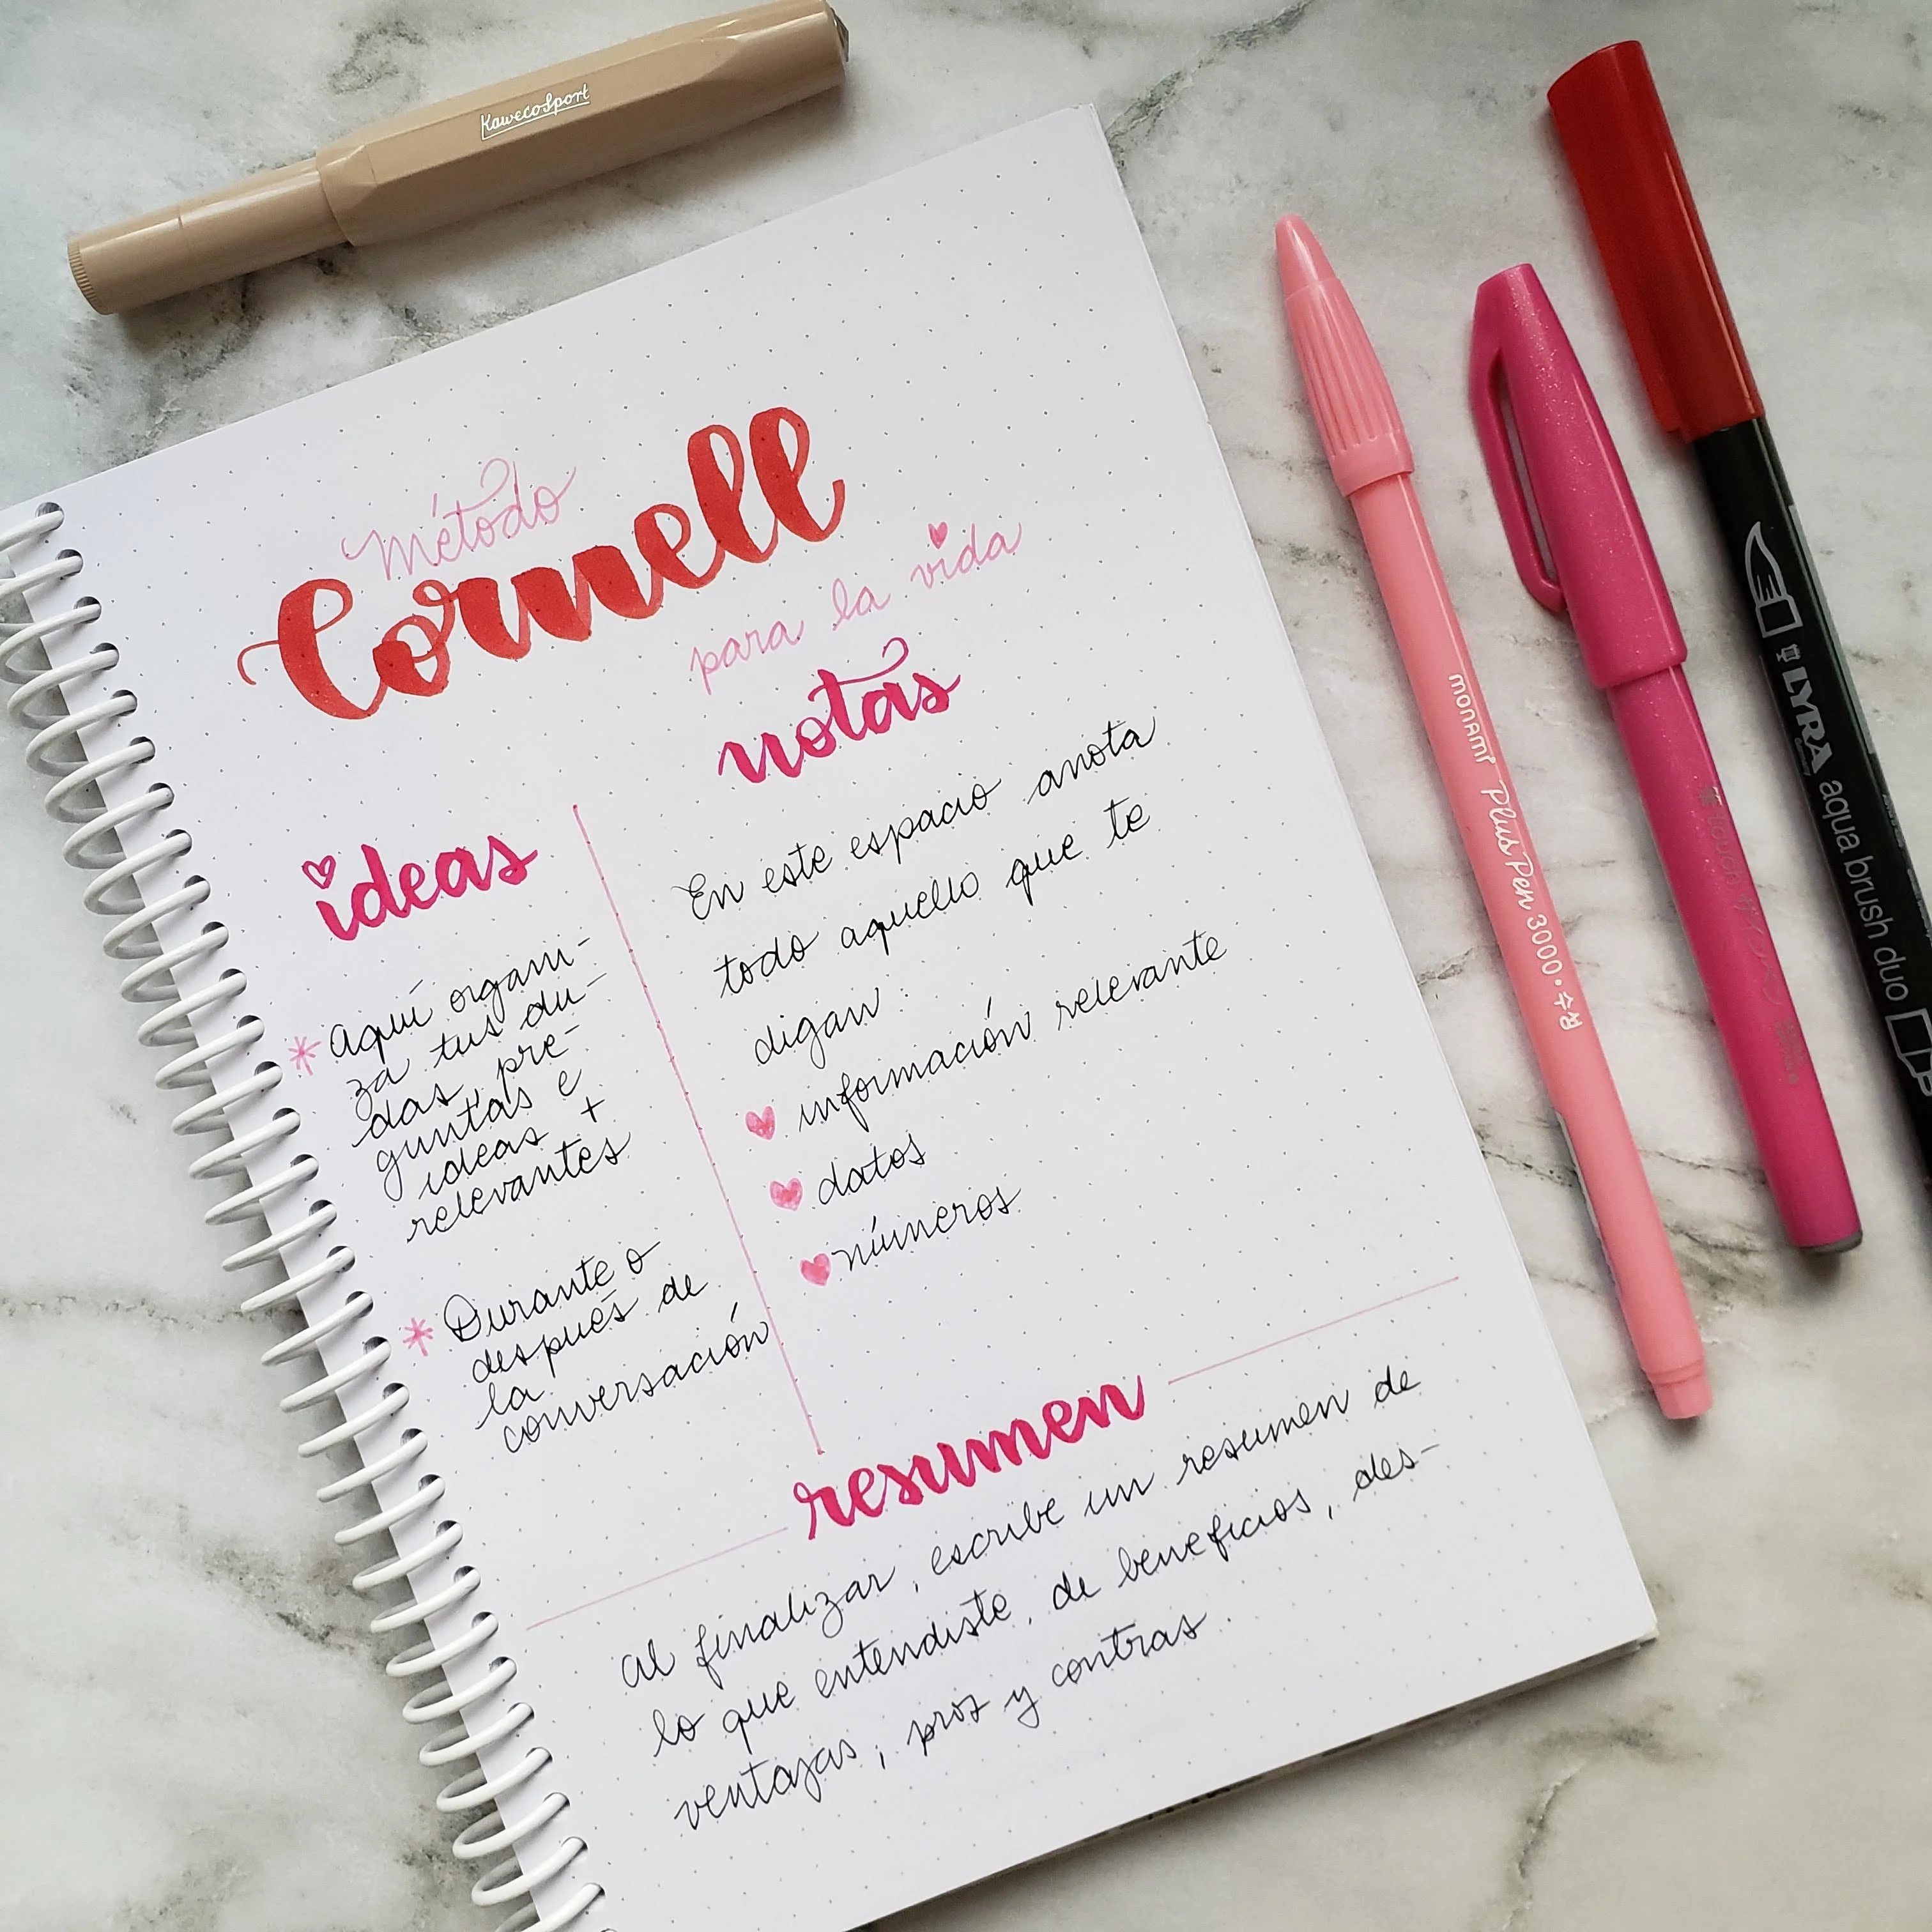 KawecoSport
Método
Cornell
para la vida
ideas
* aquí organi-
za tus du-
das, pre-
guntas e
ideas +
relevantes
* Durante o
después de
la
conversación
notas
En este espacio anota
todo aquello que te
digan:
información relevante
datos
números
resumen
al finalizar, escribe un resumen de
lo que entendiste, de beneficios, des-
ventajas, pros y contras.
monami Plus Pen 3000
touch
LYRA aqua brush duo